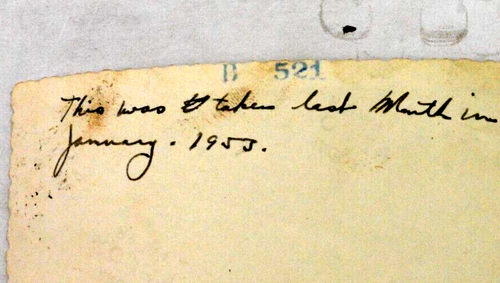 B 521
This was taken last Month in
January. 1953.